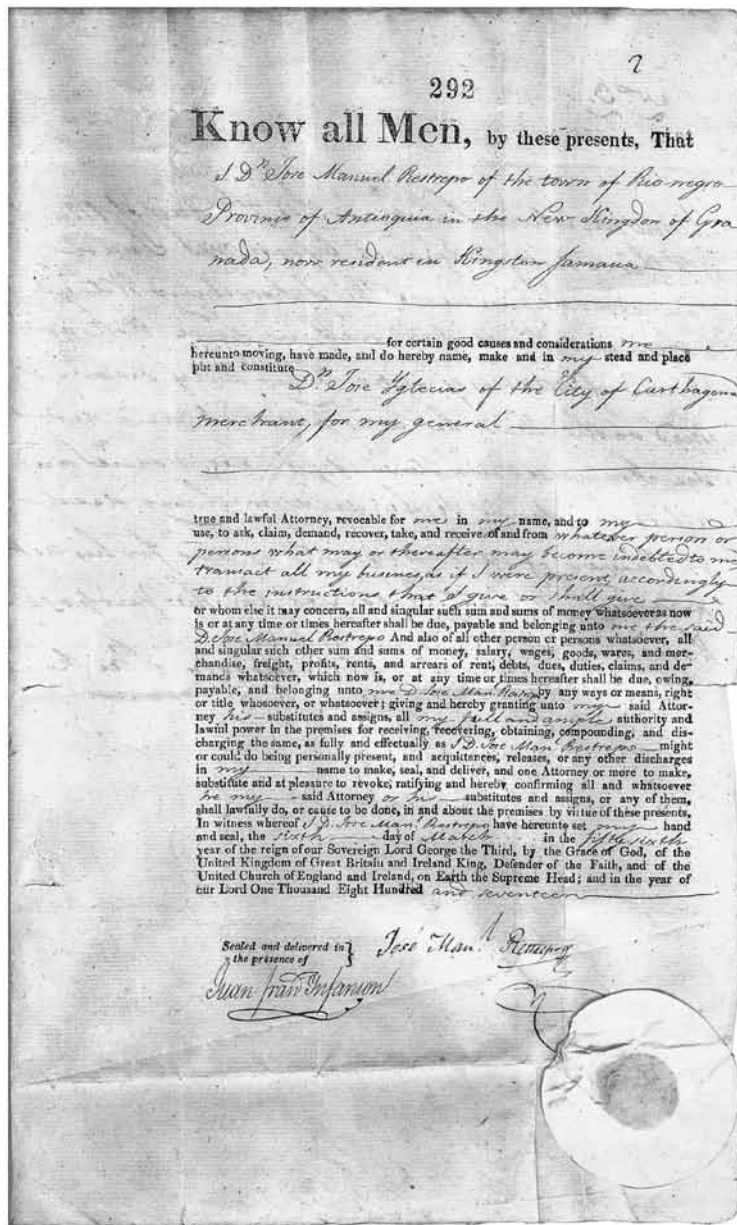 2
292
Know all Men, by these presents, That
I Dn Jose Manuel Restrepo of the town of Rio-negro
Provinis of Antioquia in the New Kingdon of Gra
nada, now resident in Kingston Jamaua
for certain good causes and considerations me
hereunto moving, have made, and do hereby name, make and in my stead and place
put and constitute
Dn Jose Yglecias of the City of Carthagena
merchant, for my general
true and lawful Attorney, revocable for me in my name, and to my
use, to ask, claim, demand, recover, take, and receive of and from whatever person or
persons what may or thereafter may become indebted to me
transact all my busines, as if I were present, accordingly
to the instructions that I give or shall give
or whom else it may concern, all and singular such sum and sums of money whatsoever as now
is or at any time or times hereafter shall be due, payable and belonging unto me the said
D. Jose Manuel Restrepo And also of all other person or persons whatsoever, all
and singular such other sum and sums of money, salary, wages, goods, wares, and mer-
chandise, freight, profits, rents, and arrears of rent, debts, dues, duties, claims, and de-
mands whatsoever, which now is, or at any time or times hereafter shall be due, owing,
payable, and belonging unto me D Jose Man Restrepo by any ways or means, right
or title whosoever, or whatsoever; giving and hereby granting unto my said Attor-
ney his substitutes and assigns, all my full and ample authority and
lawful power in the premises for receiving, recovering, obtaining, compounding, and dis-
charging the same, as fully and effectually as I D. Jose Man Restrepo might
or could do being personally present, and acquittances, releases, or any other discharges
in my name to make, seal, and deliver, and one Attorney or more to make,
substitute and at pleasure to revoke, ratifying and hereby confirming all and whatsoever
he my said Attorney or his substitutes and assigns, or any of them,
shall lawfully do, or cause to be done, in and about the premises by virtue of these presents,
In witness whereof I D. Jose Manl Restrepo have hereunto set my hand
and seal, the sixth day of Match in the fifty sixth
year of the reign of our Sovereign Lord George the Third, by the Grace of God, of the
United Kingdom of Great Britain and Ireland King, Defender of the Faith, and of the
United Church of England and Ireland, on Earth the Supreme Head; and in the year of
our Lord One Thousand Eight Hundred and seventeen
Sealed and delivered in }
the presence of
José Manl Restrepo
Juan Franco Infanson